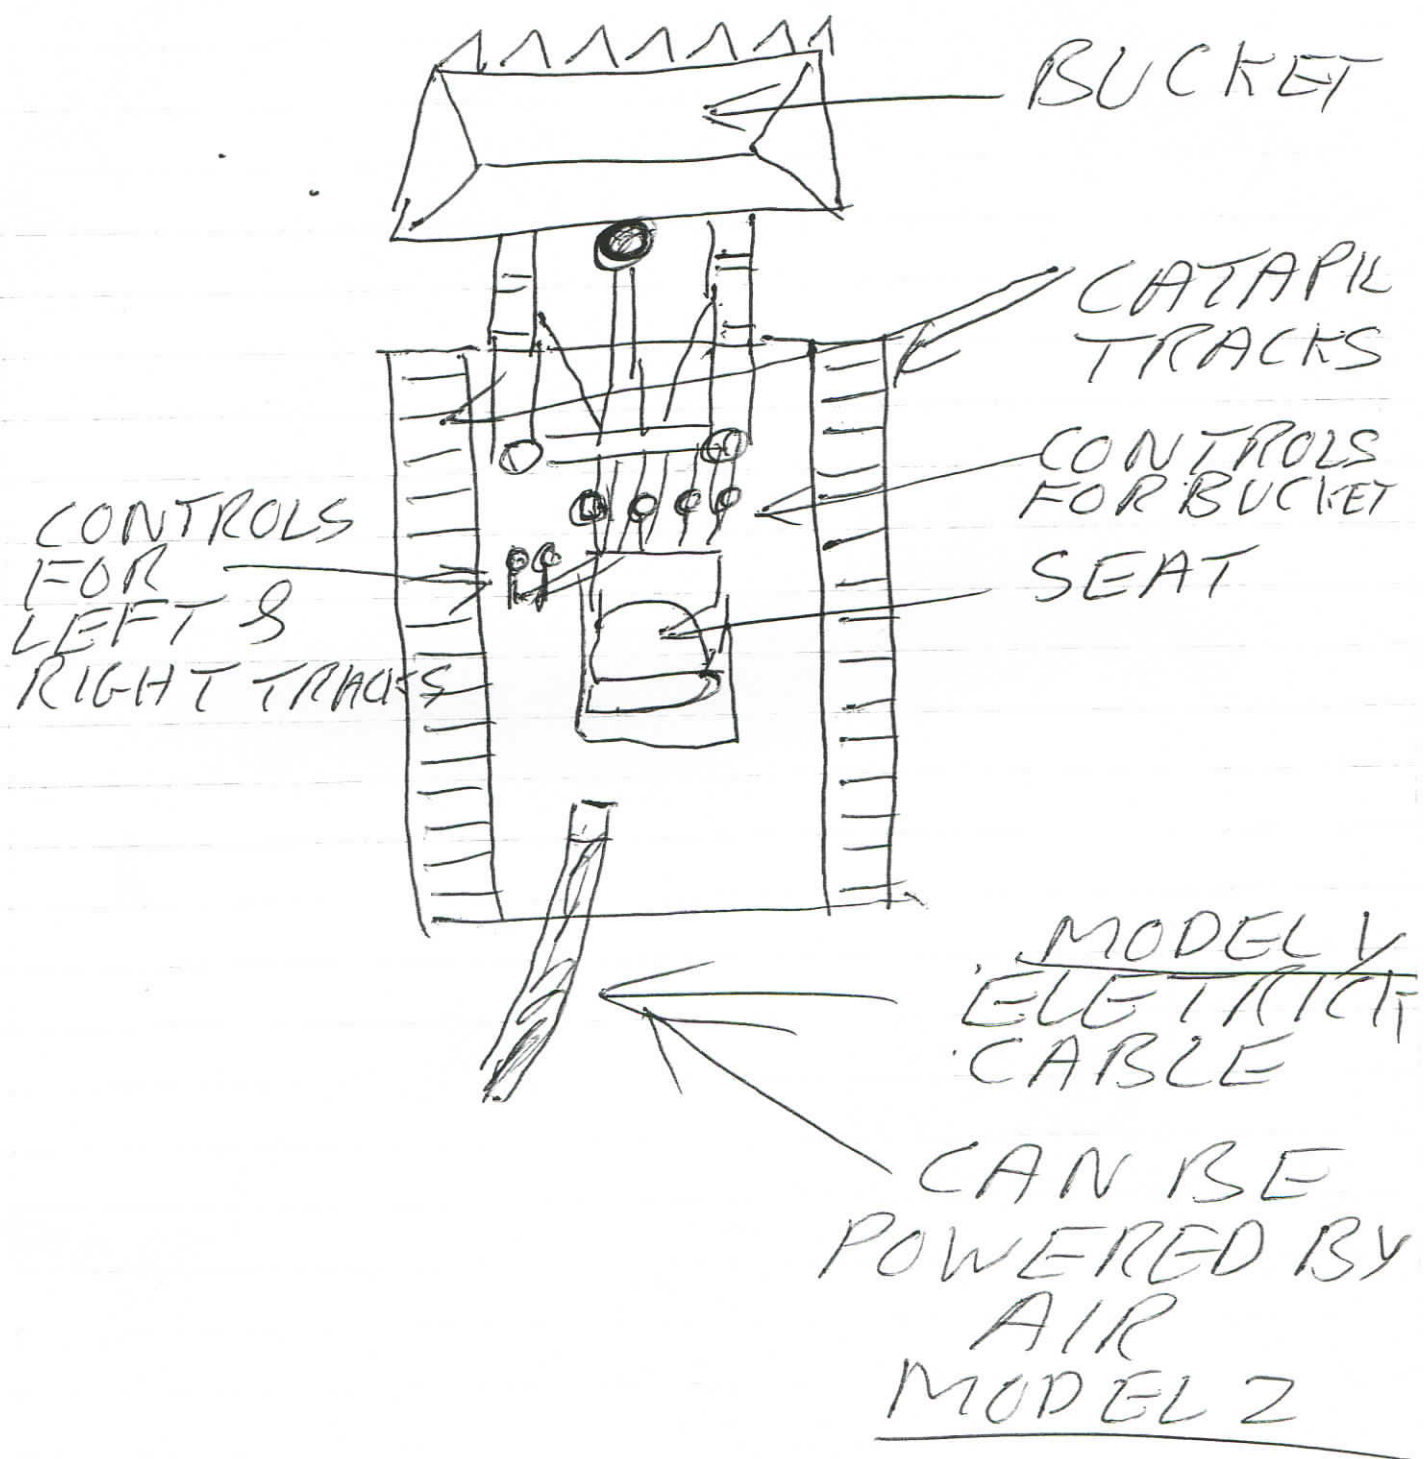 BUCKET
CATAPIL
TRACKS
CONTROLS
FOR BUCKET
SEAT
CONTROLS
FOR
LEFT &
RIGHT TRACKS
MODEL 1
ELETRICT
CABLE
CAN BE
POWERED BY
AIR
MODEL 2